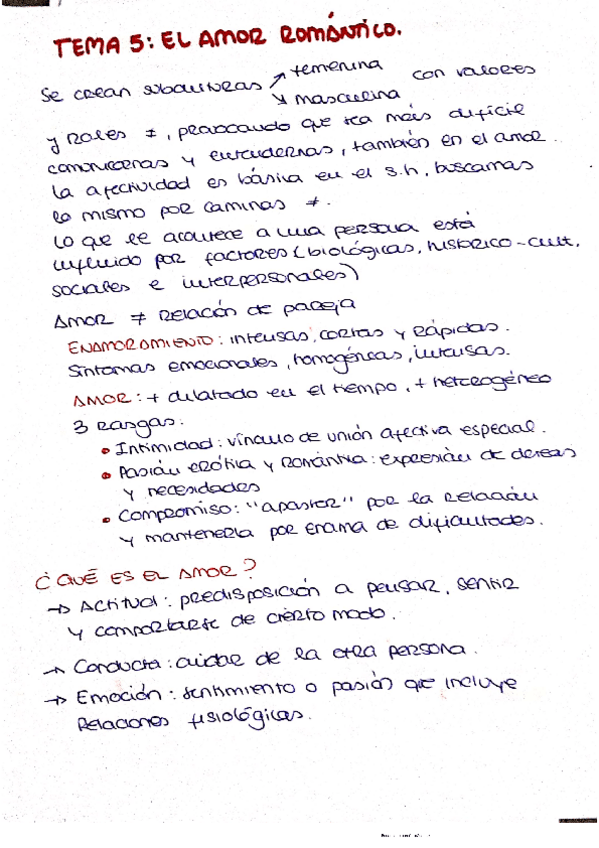 TEMA 5: EL AMOR ROMÁNTICO.
Se crean subculturas ↗ femenina con valores
↘ masculina
y roles ≠, provocando que sea más difícil
comunicarnos y entendernos, también en el amor.
La afectividad es básica en el s.h, buscamos
lo mismo por caminos ≠.
Lo que le acontece a una persona está
influido por factores (biológicos, histórico-cult,
sociales e interpersonales)
Amor ≠ Relación de pareja
ENAMORAMIENTO: intensas, cortas y rápidas.
Síntomas emocionales, homogéneas, intensas.
AMOR: + dilatado en el tiempo, + heterogéneo
3 rasgos:
• Intimidad: vínculo de unión afectiva especial.
• Pasión erótica y romántica: expresión de deseos
y necesidades
• Compromiso: "apostar" por la relación
y mantenerla por encima de dificultades.
¿QUÉ ES EL AMOR?
→ Actitud: predisposición a pensar, sentir
y comportarse de cierto modo.
→ Conducta: cuidar de la otra persona.
→ Emoción: sentimiento o pasión que incluye
Relaciones fisiológicas.